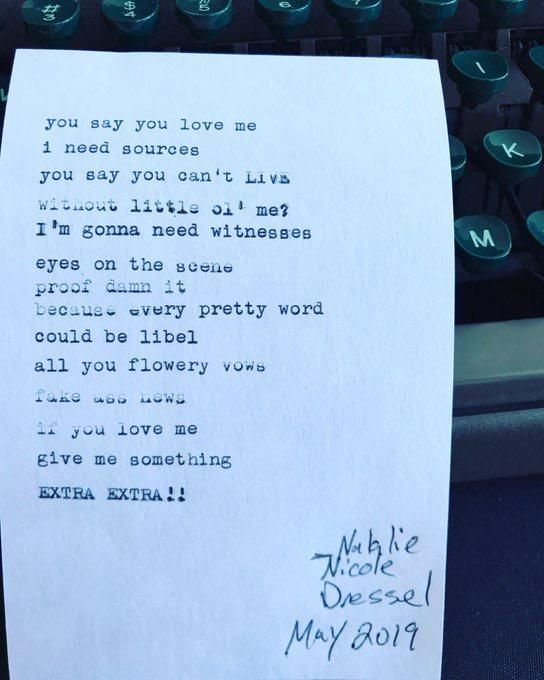 # 3
$ 4
5
6
7
I
K
M
you say you love me
i need sources
you say you can't LIVE
without little ol' me?
I'm gonna need witnesses
eyes on the scene
proof damn it
because every pretty word
could be libel
all you flowery vows
fake ass news
if you love me
give me something
EXTRA EXTRA!!
Natalie
Nicole
Dressel
May 2019